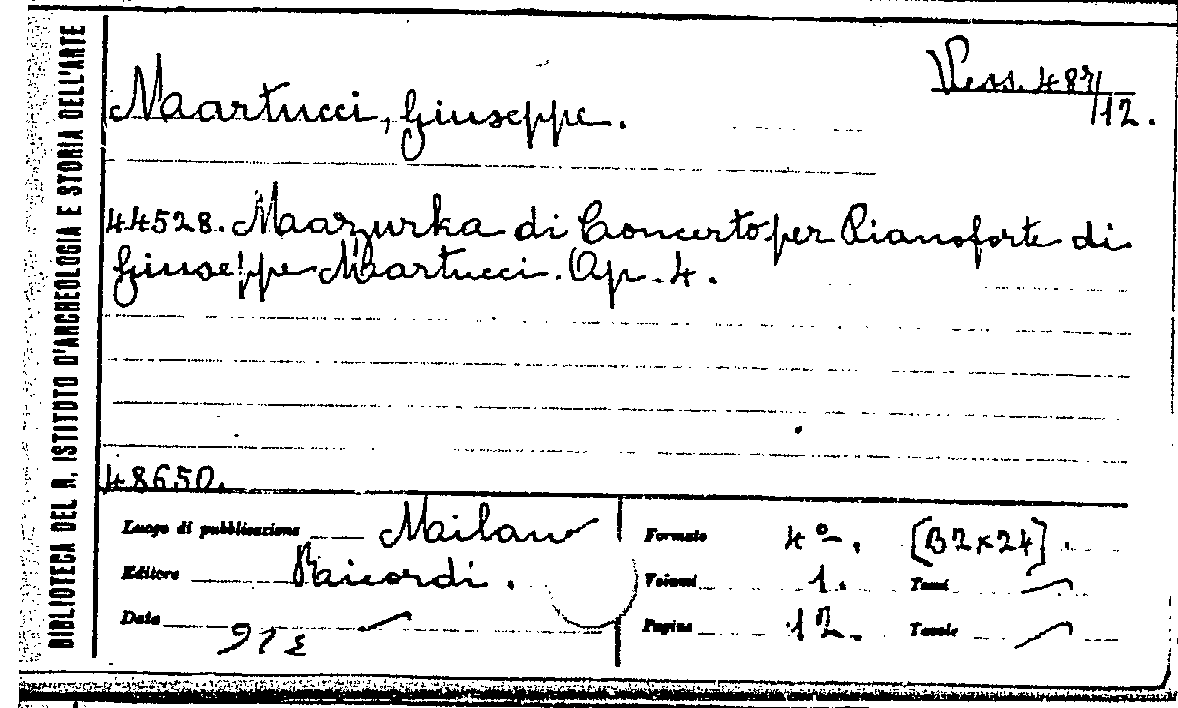 BIBLIOTECA DEL R. ISTITUTO D'ARCHEOLOGIA E STORIA DELL'ARTE
Vess. 487/12.
Martucci, Giuseppe.
44528. Mazurka di Concerto per Pianoforte di
Giuseppe Martucci. Op. 4.
48650.
Luogo di pubblicazione Milano
Editore Ricordi.
Data
Formato 4º. [32x24].
Volumi 1. Tomi
Pagine 12. Tavole